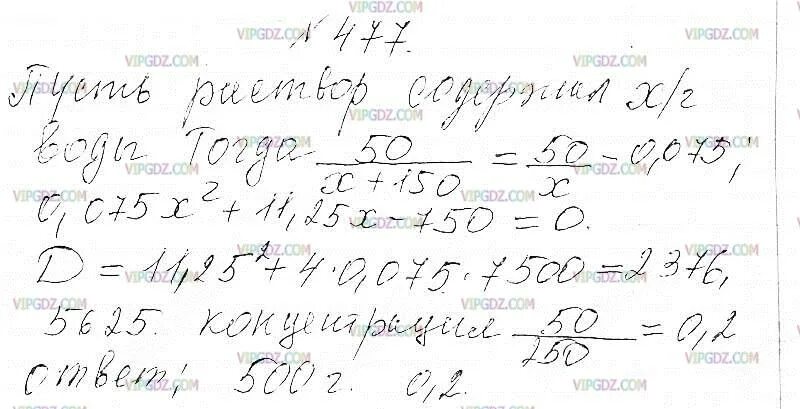 № 477.
Пусть раствор содержал x/г
воды Тогда 50/(x+150) = 50/x - 0,075;
0,075x² + 11,25x - 750 = 0.
D = 11,25² + 4·0,075·7500 = 2376,
5625. концентрация 50/250 = 0,2
ответ; 500г. 0,2.
VIPGDZ.COM